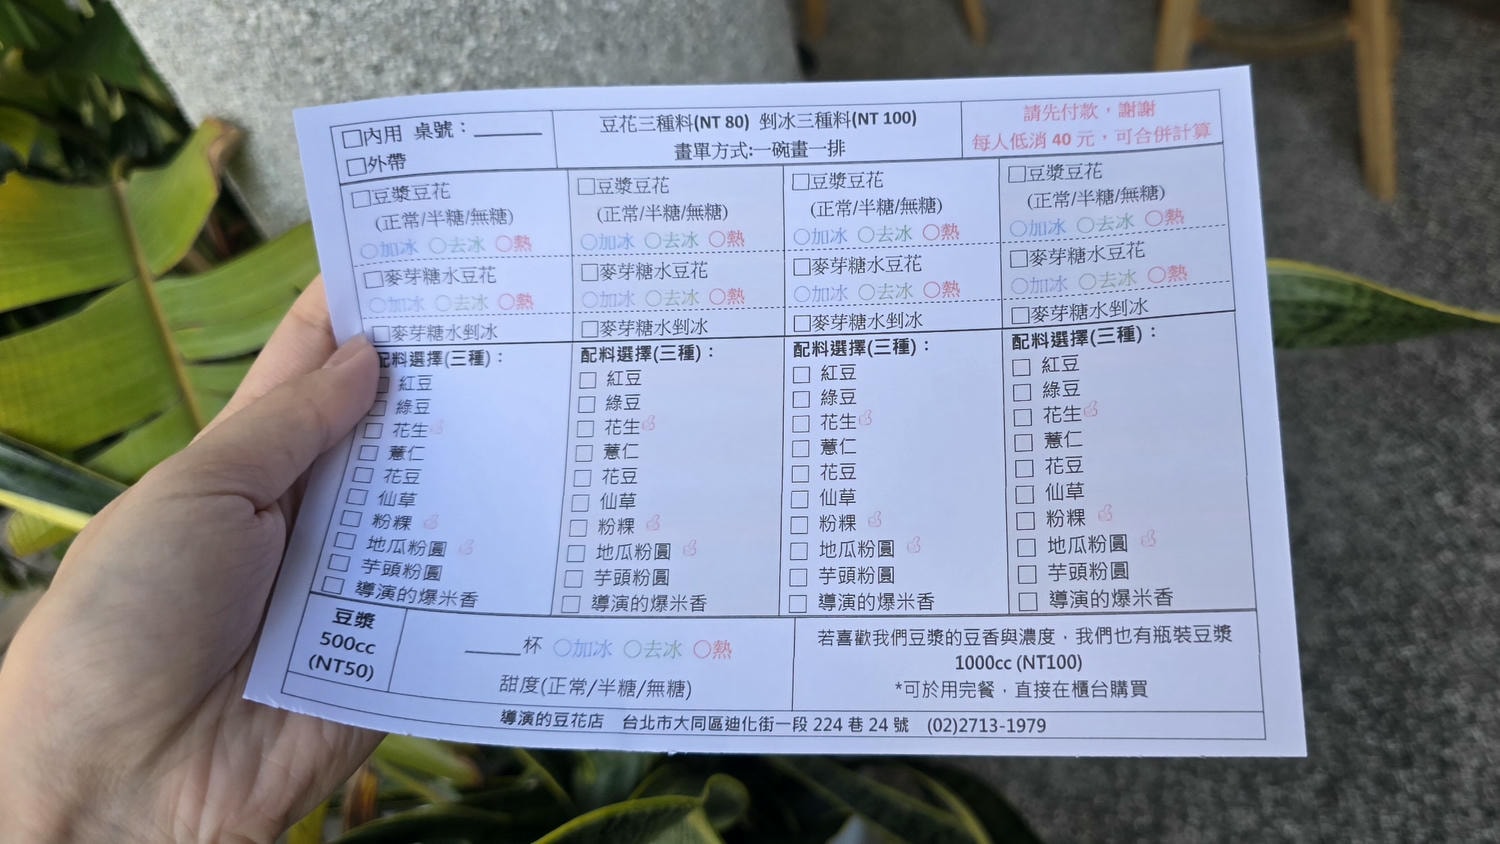 □內用 桌號：______
□外帶
豆花三種料(NT 80) 剉冰三種料(NT 100)
畫單方式:一碗畫一排
請先付款，謝謝
每人低消 40 元，可合併計算
□豆漿豆花
(正常/半糖/無糖)
○加冰 ○去冰 ○熱
□麥芽糖水豆花
○加冰 ○去冰 ○熱
□麥芽糖水剉冰
配料選擇(三種)：
□ 紅豆
□ 綠豆
□ 花生
□ 薏仁
□ 花豆
□ 仙草
□ 粉粿
□ 地瓜粉圓
□ 芋頭粉圓
□ 導演的爆米香
□豆漿豆花
(正常/半糖/無糖)
○加冰 ○去冰 ○熱
□麥芽糖水豆花
○加冰 ○去冰 ○熱
□麥芽糖水剉冰
配料選擇(三種)：
□ 紅豆
□ 綠豆
□ 花生
□ 薏仁
□ 花豆
□ 仙草
□ 粉粿
□ 地瓜粉圓
□ 芋頭粉圓
□ 導演的爆米香
□豆漿豆花
(正常/半糖/無糖)
○加冰 ○去冰 ○熱
□麥芽糖水豆花
○加冰 ○去冰 ○熱
□麥芽糖水剉冰
配料選擇(三種)：
□ 紅豆
□ 綠豆
□ 花生
□ 薏仁
□ 花豆
□ 仙草
□ 粉粿
□ 地瓜粉圓
□ 芋頭粉圓
□ 導演的爆米香
□豆漿豆花
(正常/半糖/無糖)
○加冰 ○去冰 ○熱
□麥芽糖水豆花
○加冰 ○去冰 ○熱
□麥芽糖水剉冰
配料選擇(三種)：
□ 紅豆
□ 綠豆
□ 花生
□ 薏仁
□ 花豆
□ 仙草
□ 粉粿
□ 地瓜粉圓
□ 芋頭粉圓
□ 導演的爆米香
豆漿
500cc
(NT50)
______杯 ○加冰 ○去冰 ○熱
甜度(正常/半糖/無糖)
若喜歡我們豆漿的豆香與濃度，我們也有瓶裝豆漿
1000cc (NT100)
*可於用完餐，直接在櫃台購買
導演的豆花店 台北市大同區迪化街一段 224 巷 24 號 (02)2713-1979